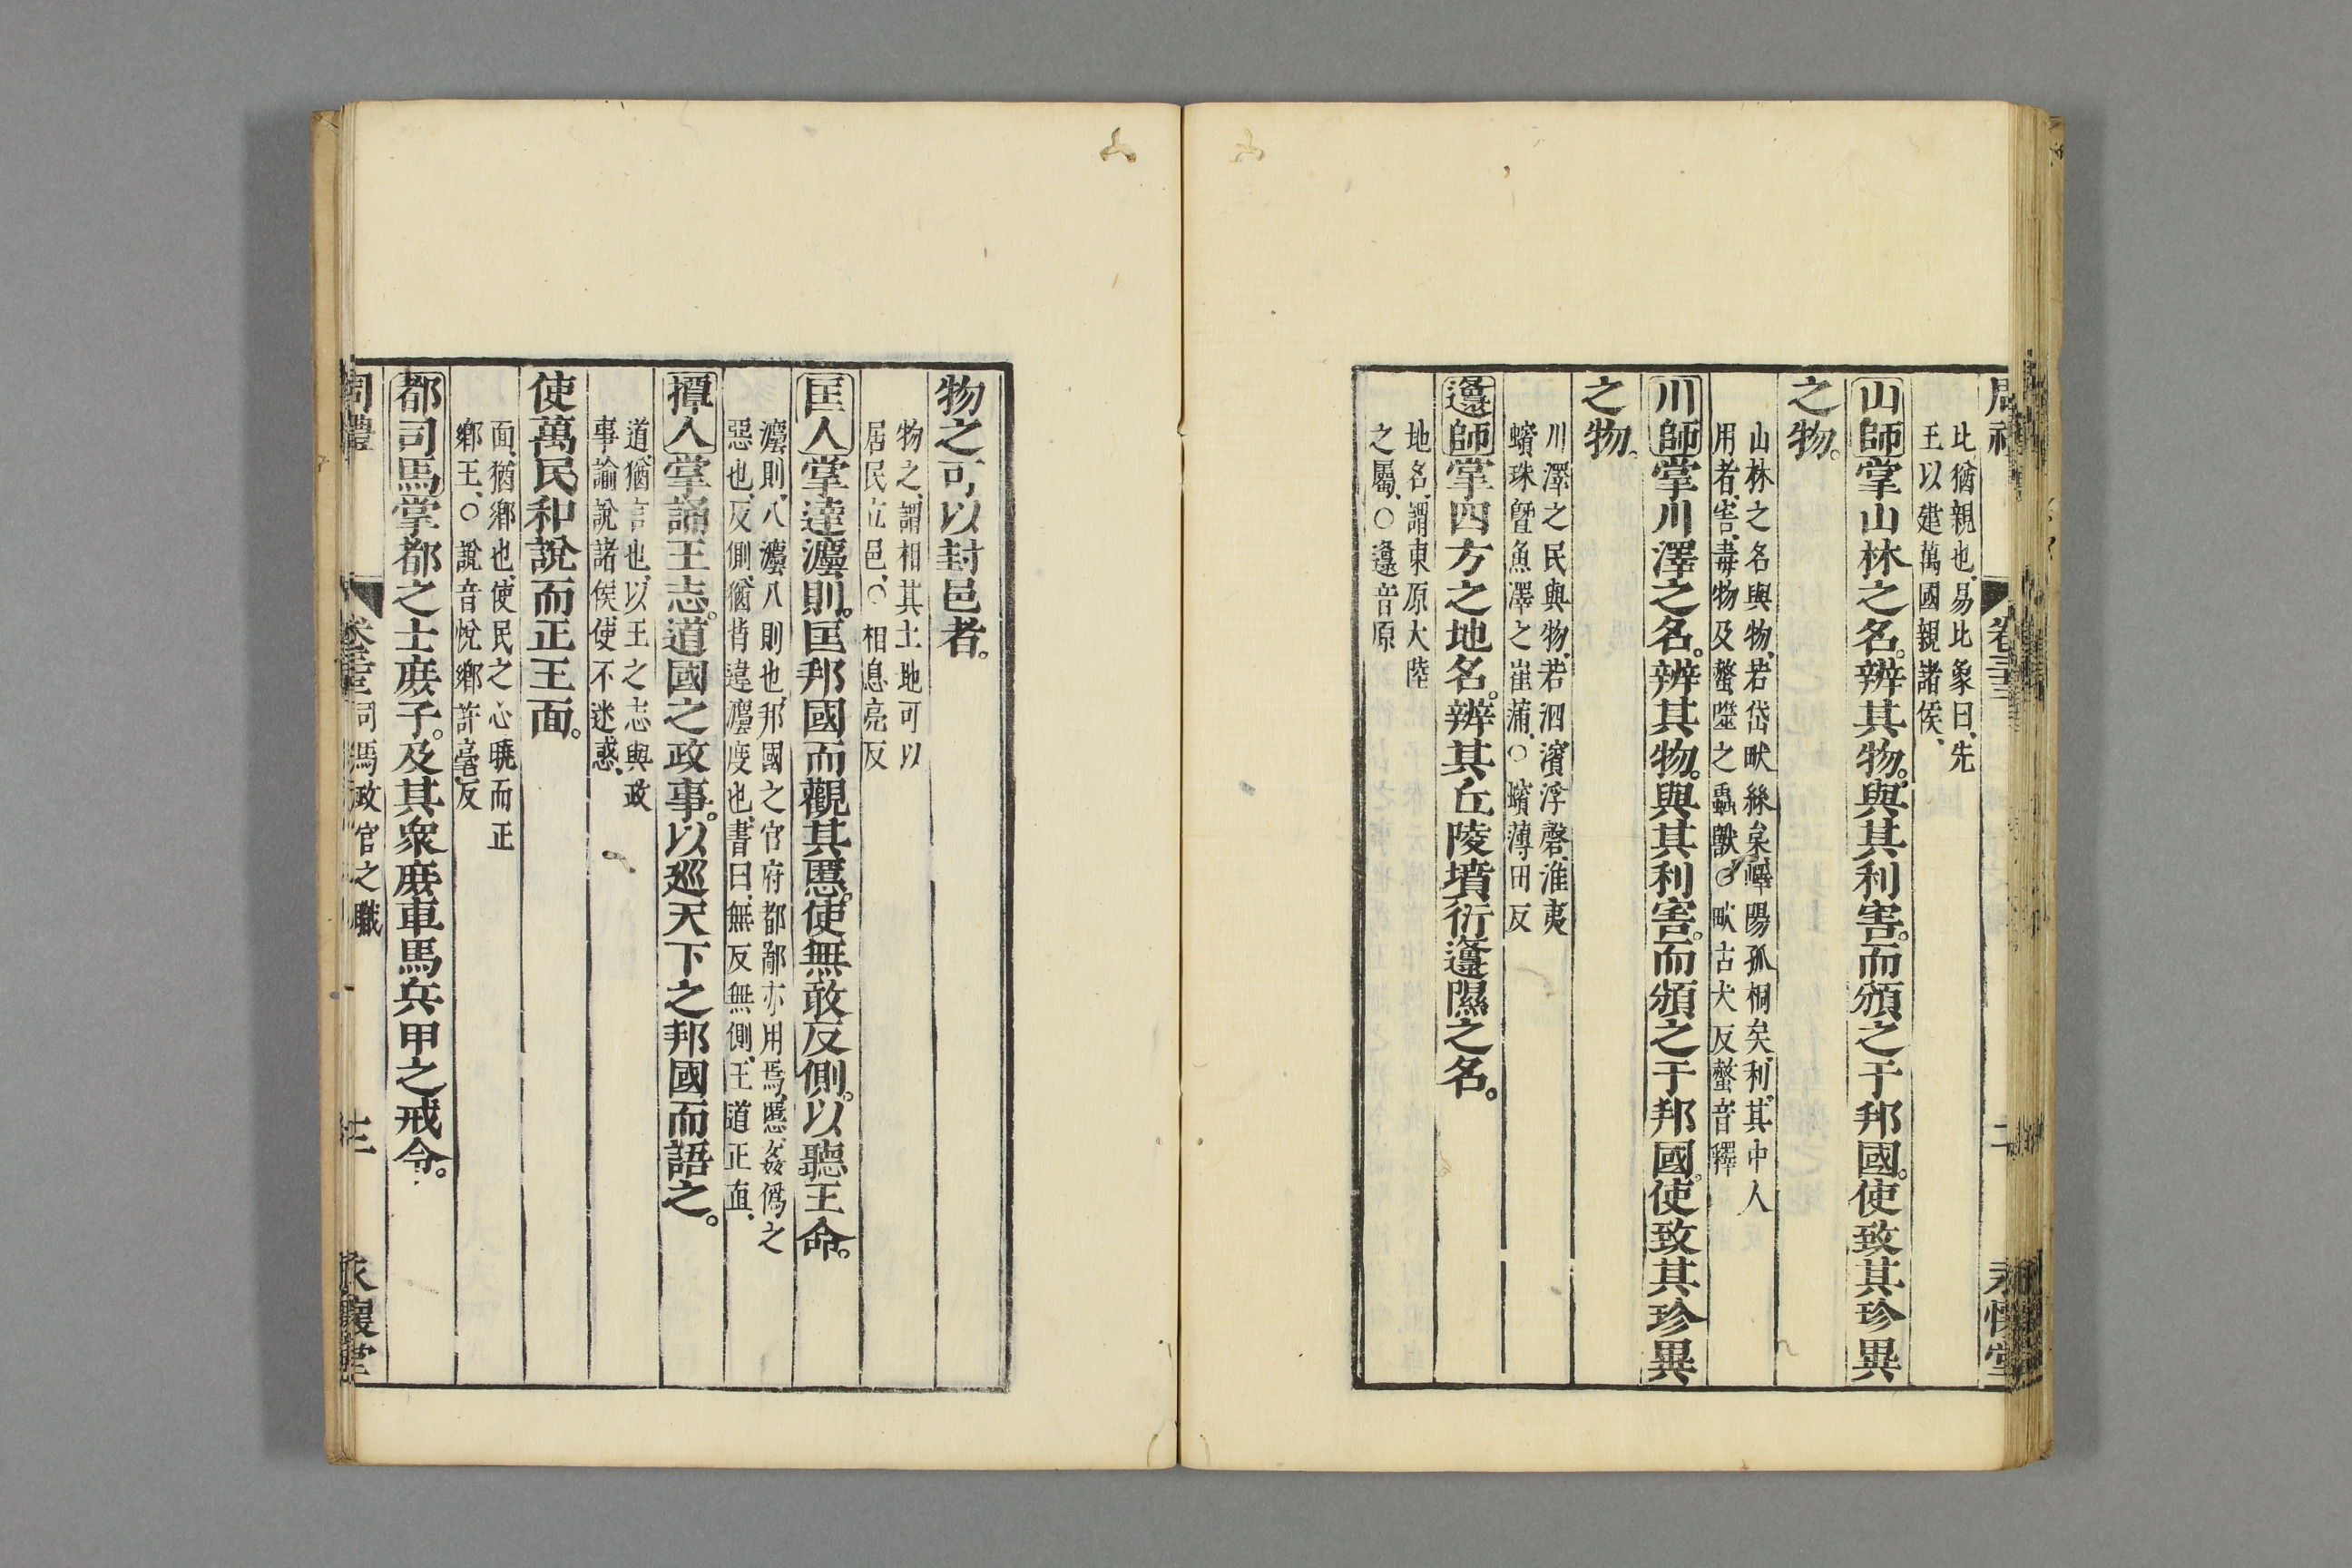 周禮 卷三十三 永懷堂
比、猶親也、易比象曰、先
王以建萬國親諸侯、
山師掌山林之名。辨其物。與其利害。而頒之于邦國。使致其珍異
之物。
山林之名與物、若岱畎絲枲、嶧陽孤桐矣、利、其中人
用者、害、毒物及螫噬之蟲獸、○畎古犬反螫音釋
川師掌川澤之名。辨其物。與其利害。而頒之于邦國。使致其珍異
之物。
川澤之民與物、若泗濱浮磬、淮夷
蠙珠曁魚澤之萑蒲、○蠙薄田反
邍師掌四方之地名。辨其丘陵墳衍邍隰之名。
地名、謂東原大陸
之屬、○邍音原
物之可以封邑者。
物之、謂相其土地可以
居民立邑、○相息亮反
匡人掌達灋則。匡邦國而觀其慝。使無敢反側。以聽王命。
灋則、八灋八則也、邦國之官府都鄙亦用焉、慝、姦僞之
惡也、反側、猶背違灋度也、書曰、無反無側、王道正直、
撢人掌誦王志。道國之政事。以巡天下之邦國而語之。
道、猶言也、以王之志與政
事諭說諸侯使不迷惑、
使萬民和說而正王面。
面、猶鄉也、使民之心曉而正
鄉王、○說音悅鄉許亳反
都司馬掌都之士庶子。及其衆庶車馬兵甲之戒令。
周禮 卷三十三 司馬政官之職 十三 永懷堂